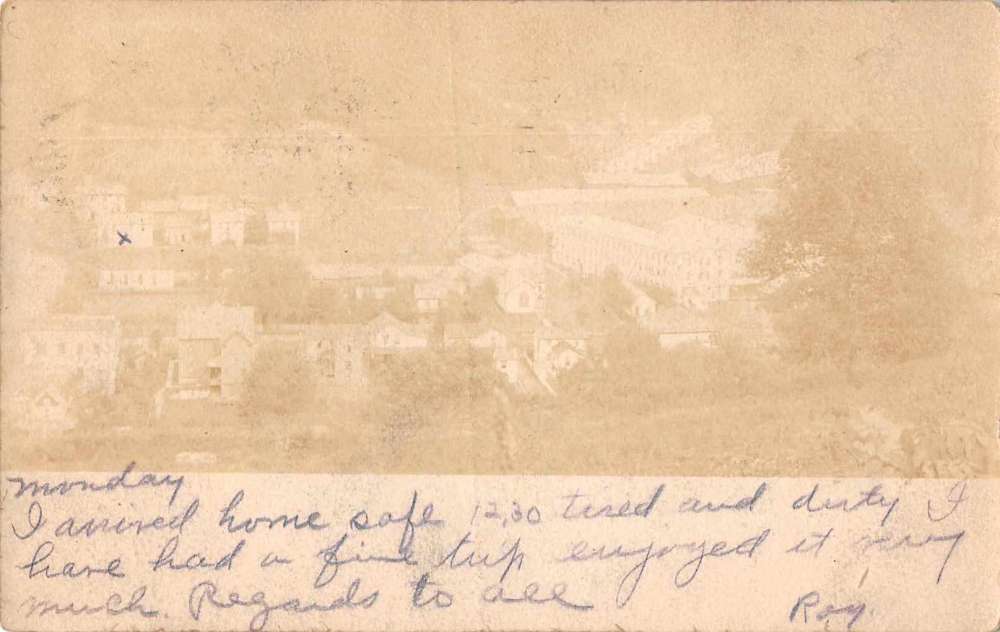 Monday
I arrived home safe 12,30 tired and dirty I
have had a fine trip enyoyed it very
much. Regards to all
Roy.